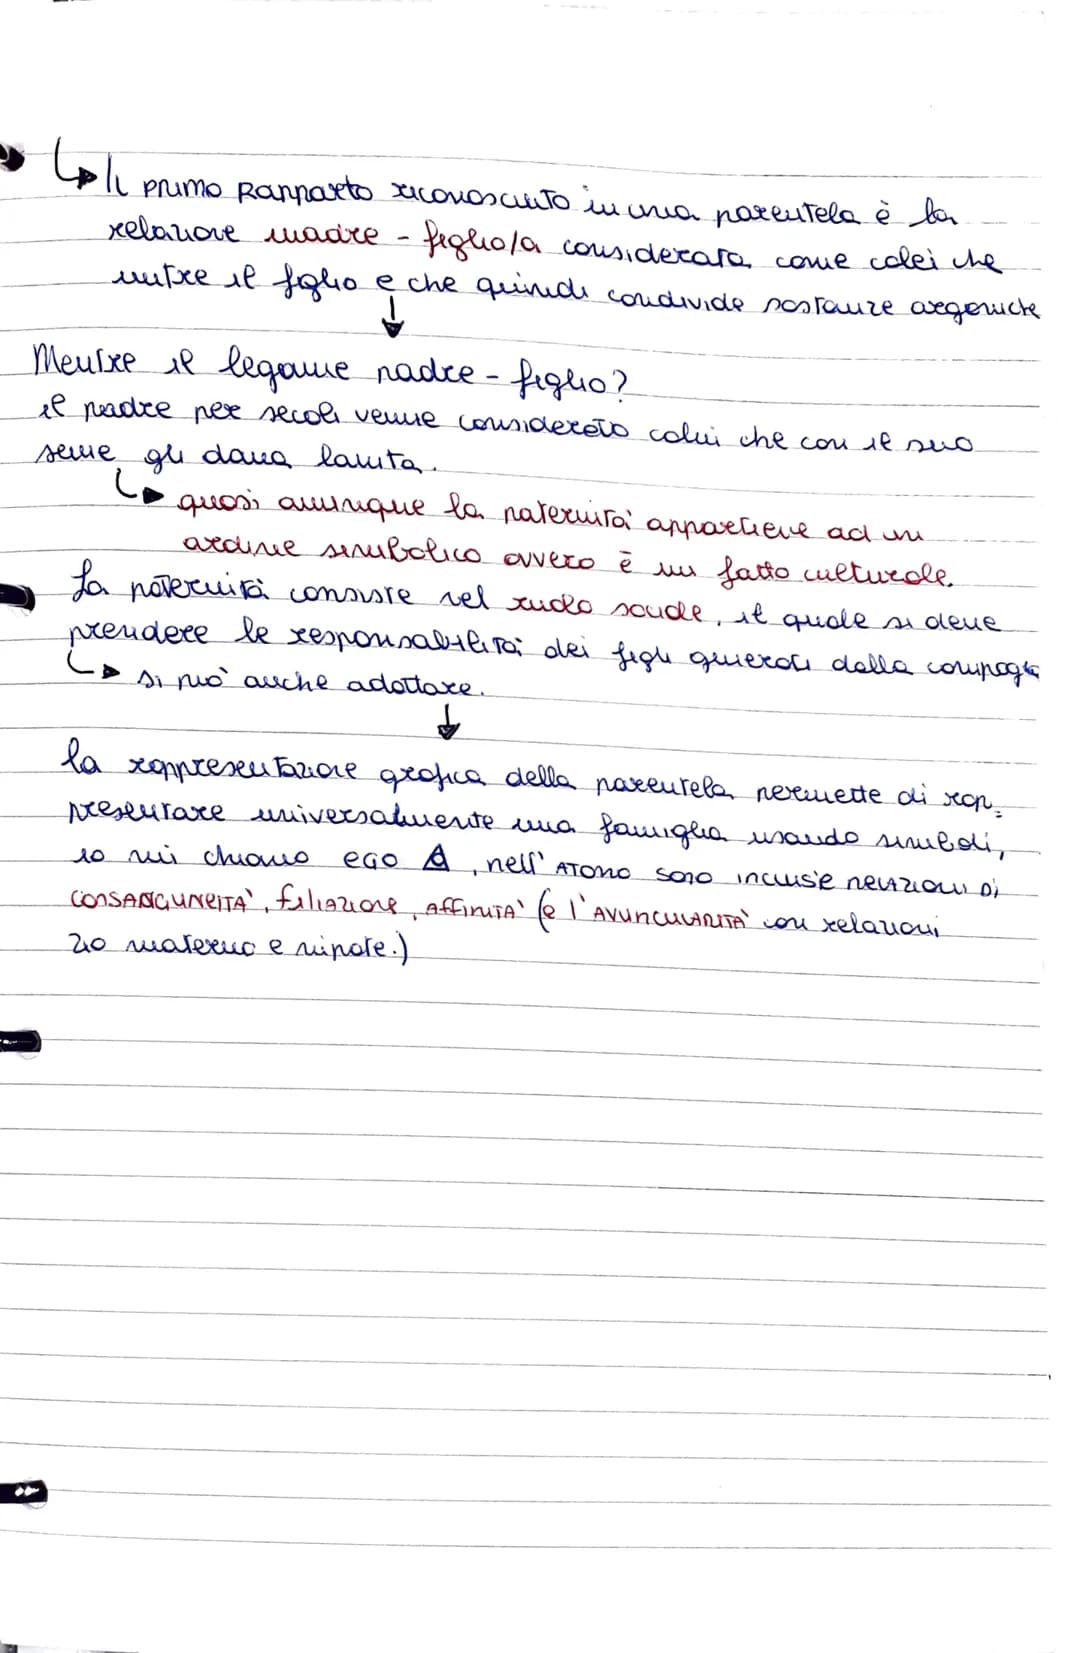 ↳ Il primo Rapporto riconosciuto in una parentela è la
relazione madre - figlio/a considerata come colei che
nutre il figlio e che quindi condivide sostanze organiche
↓
Mentre il legame padre - figlio?
il padre per secoli venne considerato colui che con il suo
seme gli dava la vita.
↳ quasi ovunque la paternità appartiene ad un
ordine simbolico ovvero è un fatto culturale.
La paternità consiste nel ruolo sociale, il quale si deve
prendere le responsabilità dei figli generati dalla compagna
↳ si può anche adottare.
↓
la rappresentazione grafica della parentela permette di rap=
presentare universalmente una famiglia usando simboli,
io mi chiamo EGO △, nell' ATOMO sono incluse relazioni di
CONSANGUNEITÀ, filiazione, AFFINITÀ (e l'AVUNCULARITÀ con relazioni
zio materno e nipote.)